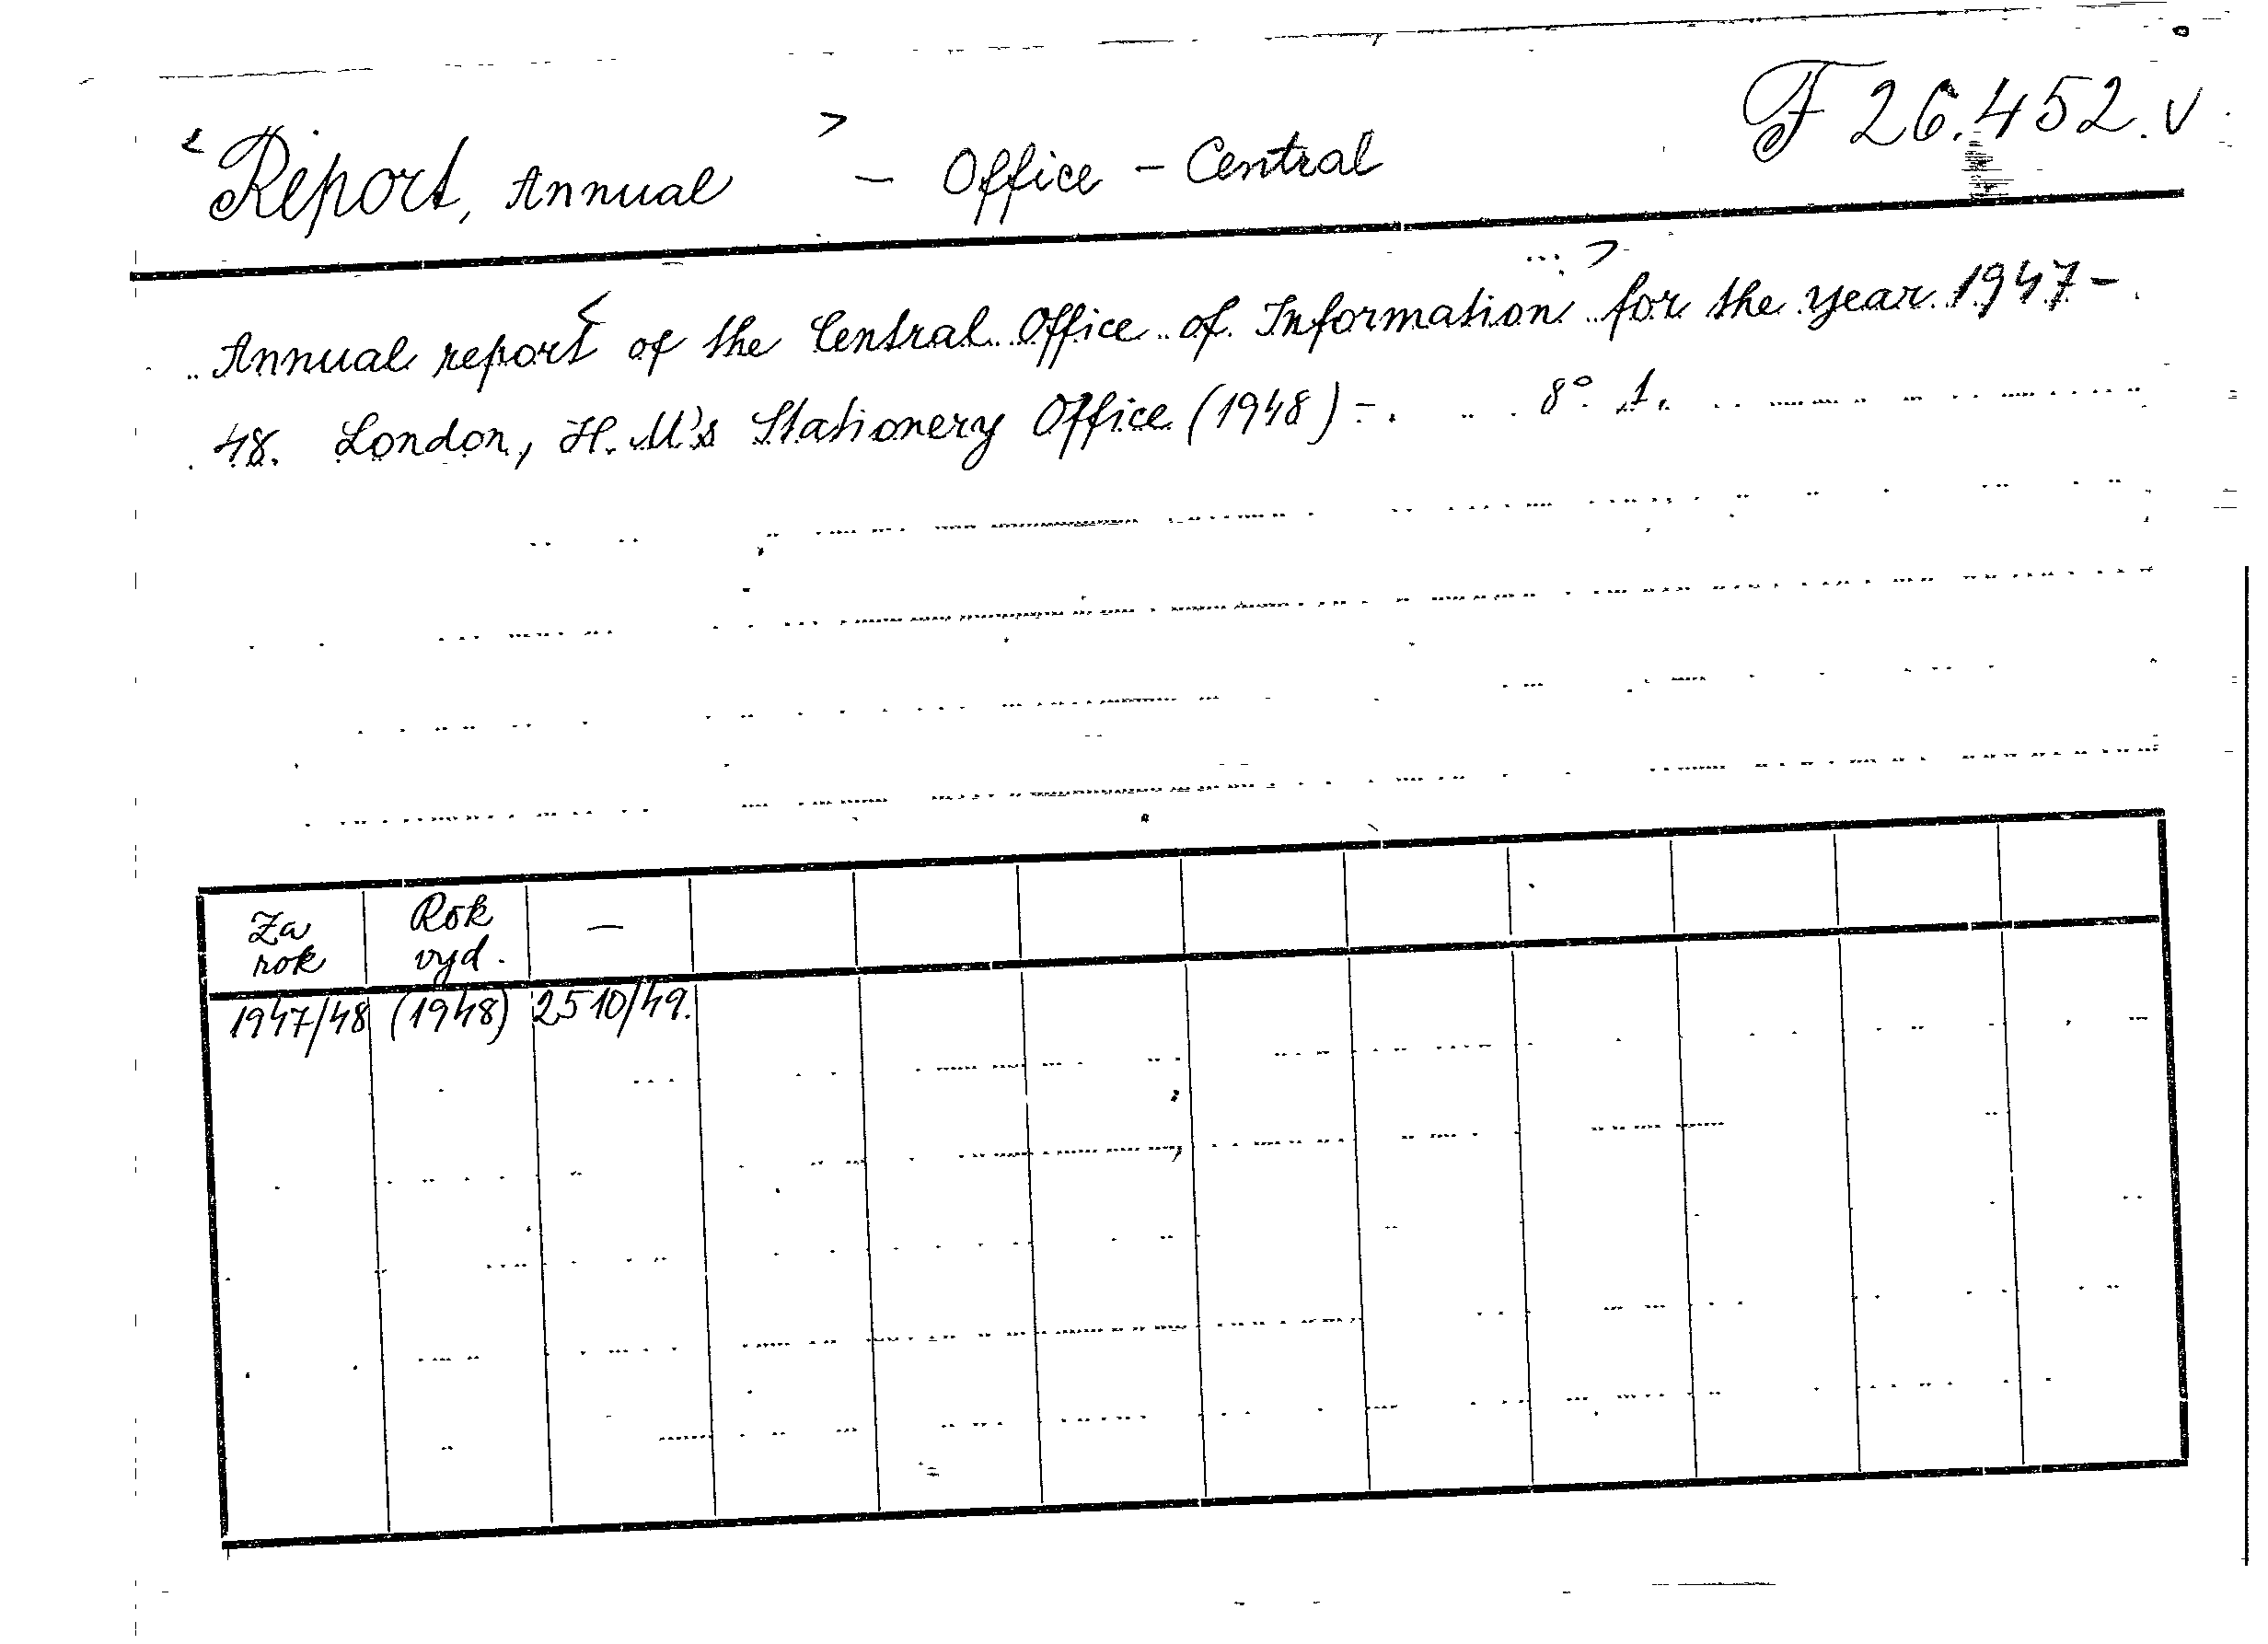 F 26.452. v
<Report, Annual> – Office – Central
Annual report < of the Central Office of Information ...> for the year 1947–
48. London, H. M's Stationery Office (1948) –. 8° 1.
Za rok Rok vyd. —
1947/48 (1948) 2510/49.